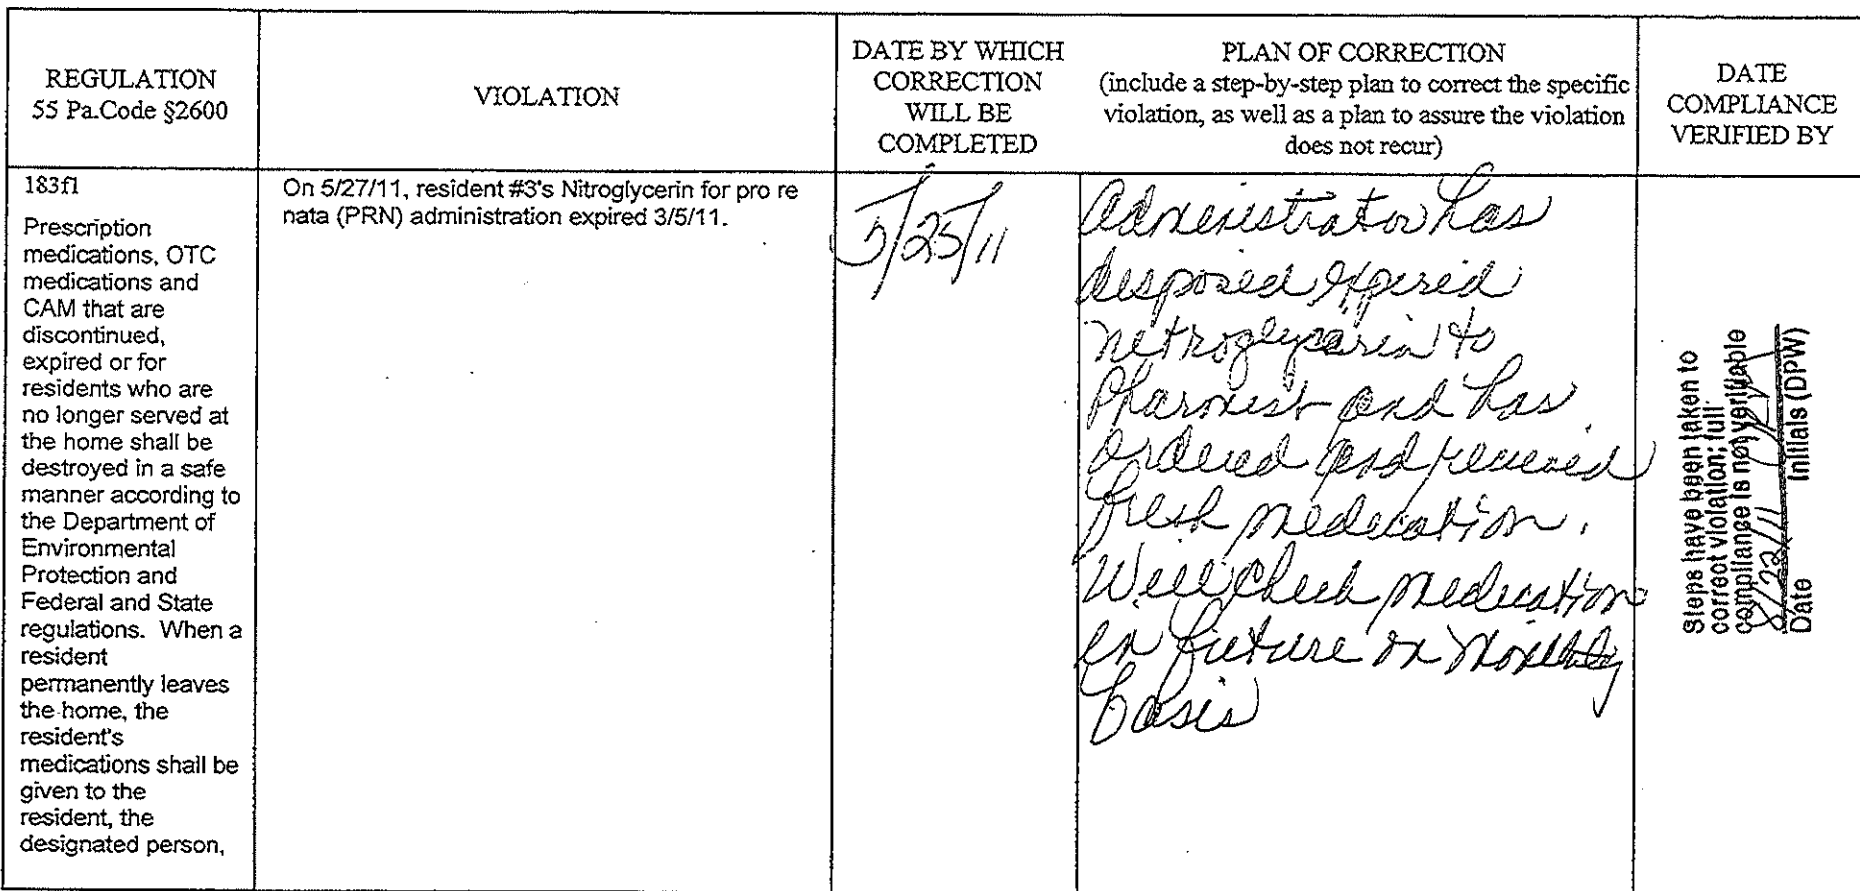 REGULATION
55 Pa.Code §2600
VIOLATION
DATE BY WHICH
CORRECTION
WILL BE
COMPLETED
PLAN OF CORRECTION
(include a step-by-step plan to correct the specific
violation, as well as a plan to assure the violation
does not recur)
DATE
COMPLIANCE
VERIFIED BY
183f1
Prescription
medications, OTC
medications and
CAM that are
discontinued,
expired or for
residents who are
no longer served at
the home shall be
destroyed in a safe
manner according to
the Department of
Environmental
Protection and
Federal and State
regulations. When a
resident
permanently leaves
the home, the
resident's
medications shall be
given to the
resident, the
designated person,
On 5/27/11, resident #3's Nitroglycerin for pro re
nata (PRN) administration expired 3/5/11.
5/25/11
Administrator has
disposed expired
nitroglycerin to
Pharmist and has
ordered and received
fresh medication.
Will check medication
in future on monthly
basis
Steps have been taken to
correct violation; full
compliance is not verifiable
8/22/11
Date Initials (DPW)